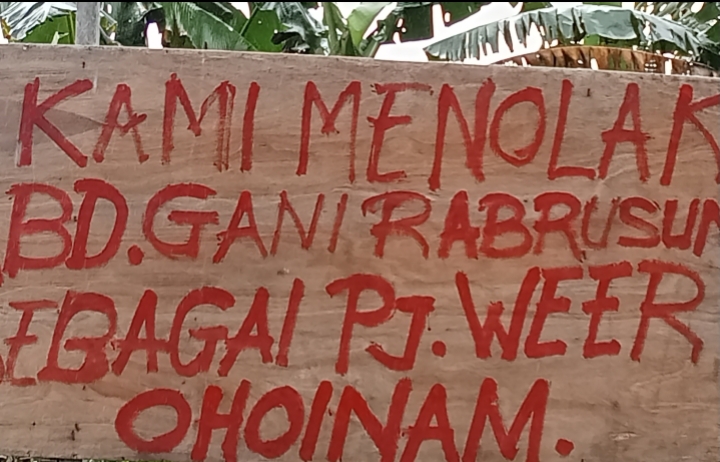 KAMI MENOLAK
BD.GANI RABRUSUN
SEBAGAI PJ. WEER
OHOINAM.